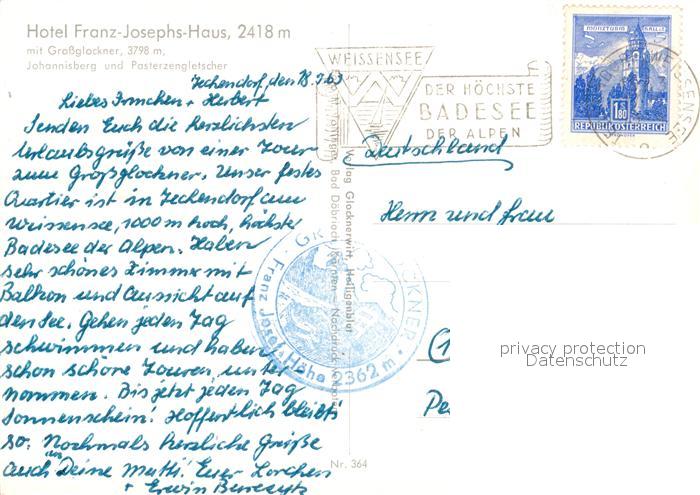 Hotel Franz-Josephs-Haus, 2418 m
mit Großglockner, 3798 m,
Johannisberg und Pasterzengletscher
Techendorf, den 18.9.63
Liebes Irmchen + Herbert
Senden Euch die herzlichsten
Urlaubsgrüße von einer Tour
zum Großglockner. Unser festes
Quartier ist in Techendorf am
Weissensee, 1000 m hoch, höchster
Badesee der Alpen. Haben
sehr schönes Zimmer mit
Balkon und Aussicht auf
den See. Gehen jeden Tag
schwimmen und haben
schon schöne Touren unter
nommen. Bis jetzt jeden Tag
Sonnenschein! Hoffentlich bleibt's
so. Nochmals herzliche Grüße
auch an Deine Mutti! Euer Lorchen
+ Erwin
WEISSENSEE
DER HÖCHSTE
BADESEE
DER ALPEN
MÜNZTURM HALL I. T.
1.80
REPUBLIK ÖSTERREICH
WEISSENSEE
Deutschland
Herrn und Frau
(1
Pe
Verlag Glocknerwirt, Heiligenblut
Bad Döbriach, Kärnten — Nachdruck verboten
GROSSGLOCKNER
Franz Josefs Höhe 2362 m
privacy protection
Datenschutz
Nr. 364